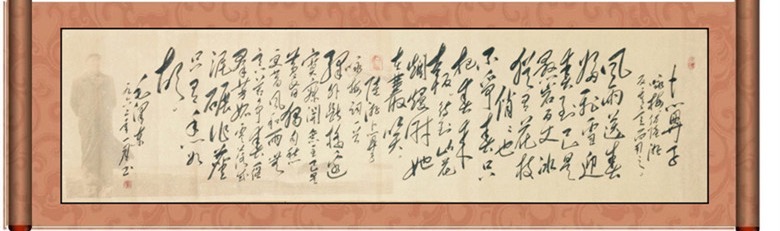 卜算子
风雨送春
归飞雪迎
春到已是
悬岩百丈冰
犹有花枝
俏俏也
不争春只
把春来
报待到山花
烂熳时她
在丛笑
咏梅词
驿外断桥边
寂寞开无主已是
黄昏独自愁
更着风和雨无
意苦争春一任
群芳妒零落成
泥碾作尘
只有香如
故
毛泽东